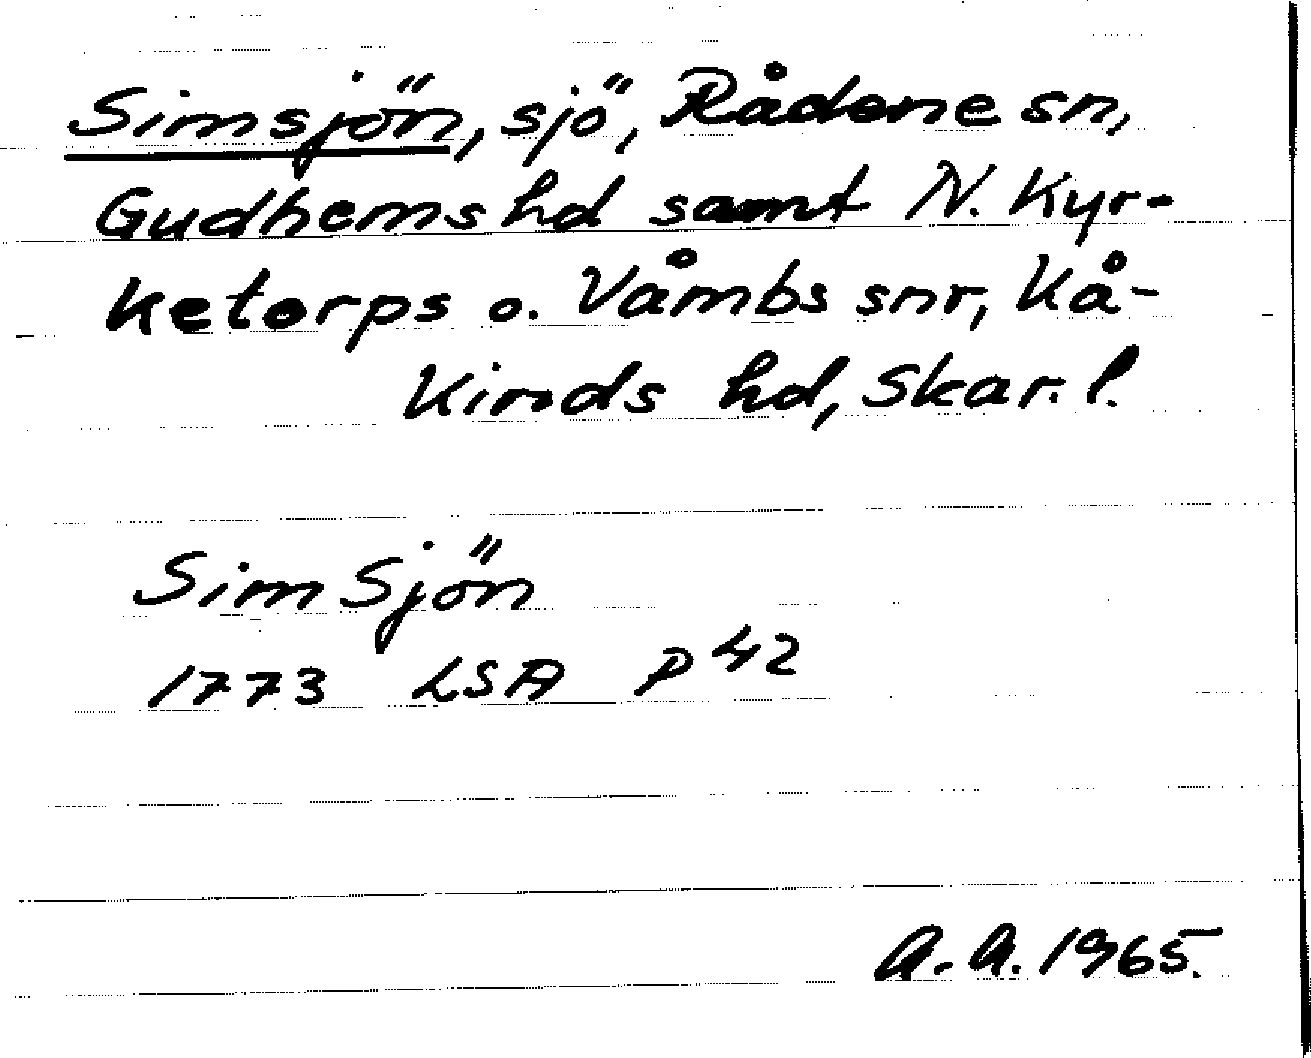 Simsjön, sjö, Rådene sn,
Gudhems hd samt N. Kyr-
ketorps o. Våmbs snr, Kå-
kinds hd, Skar. l.
Sim Sjön
1773 LSA P 42
A. A. 1965.